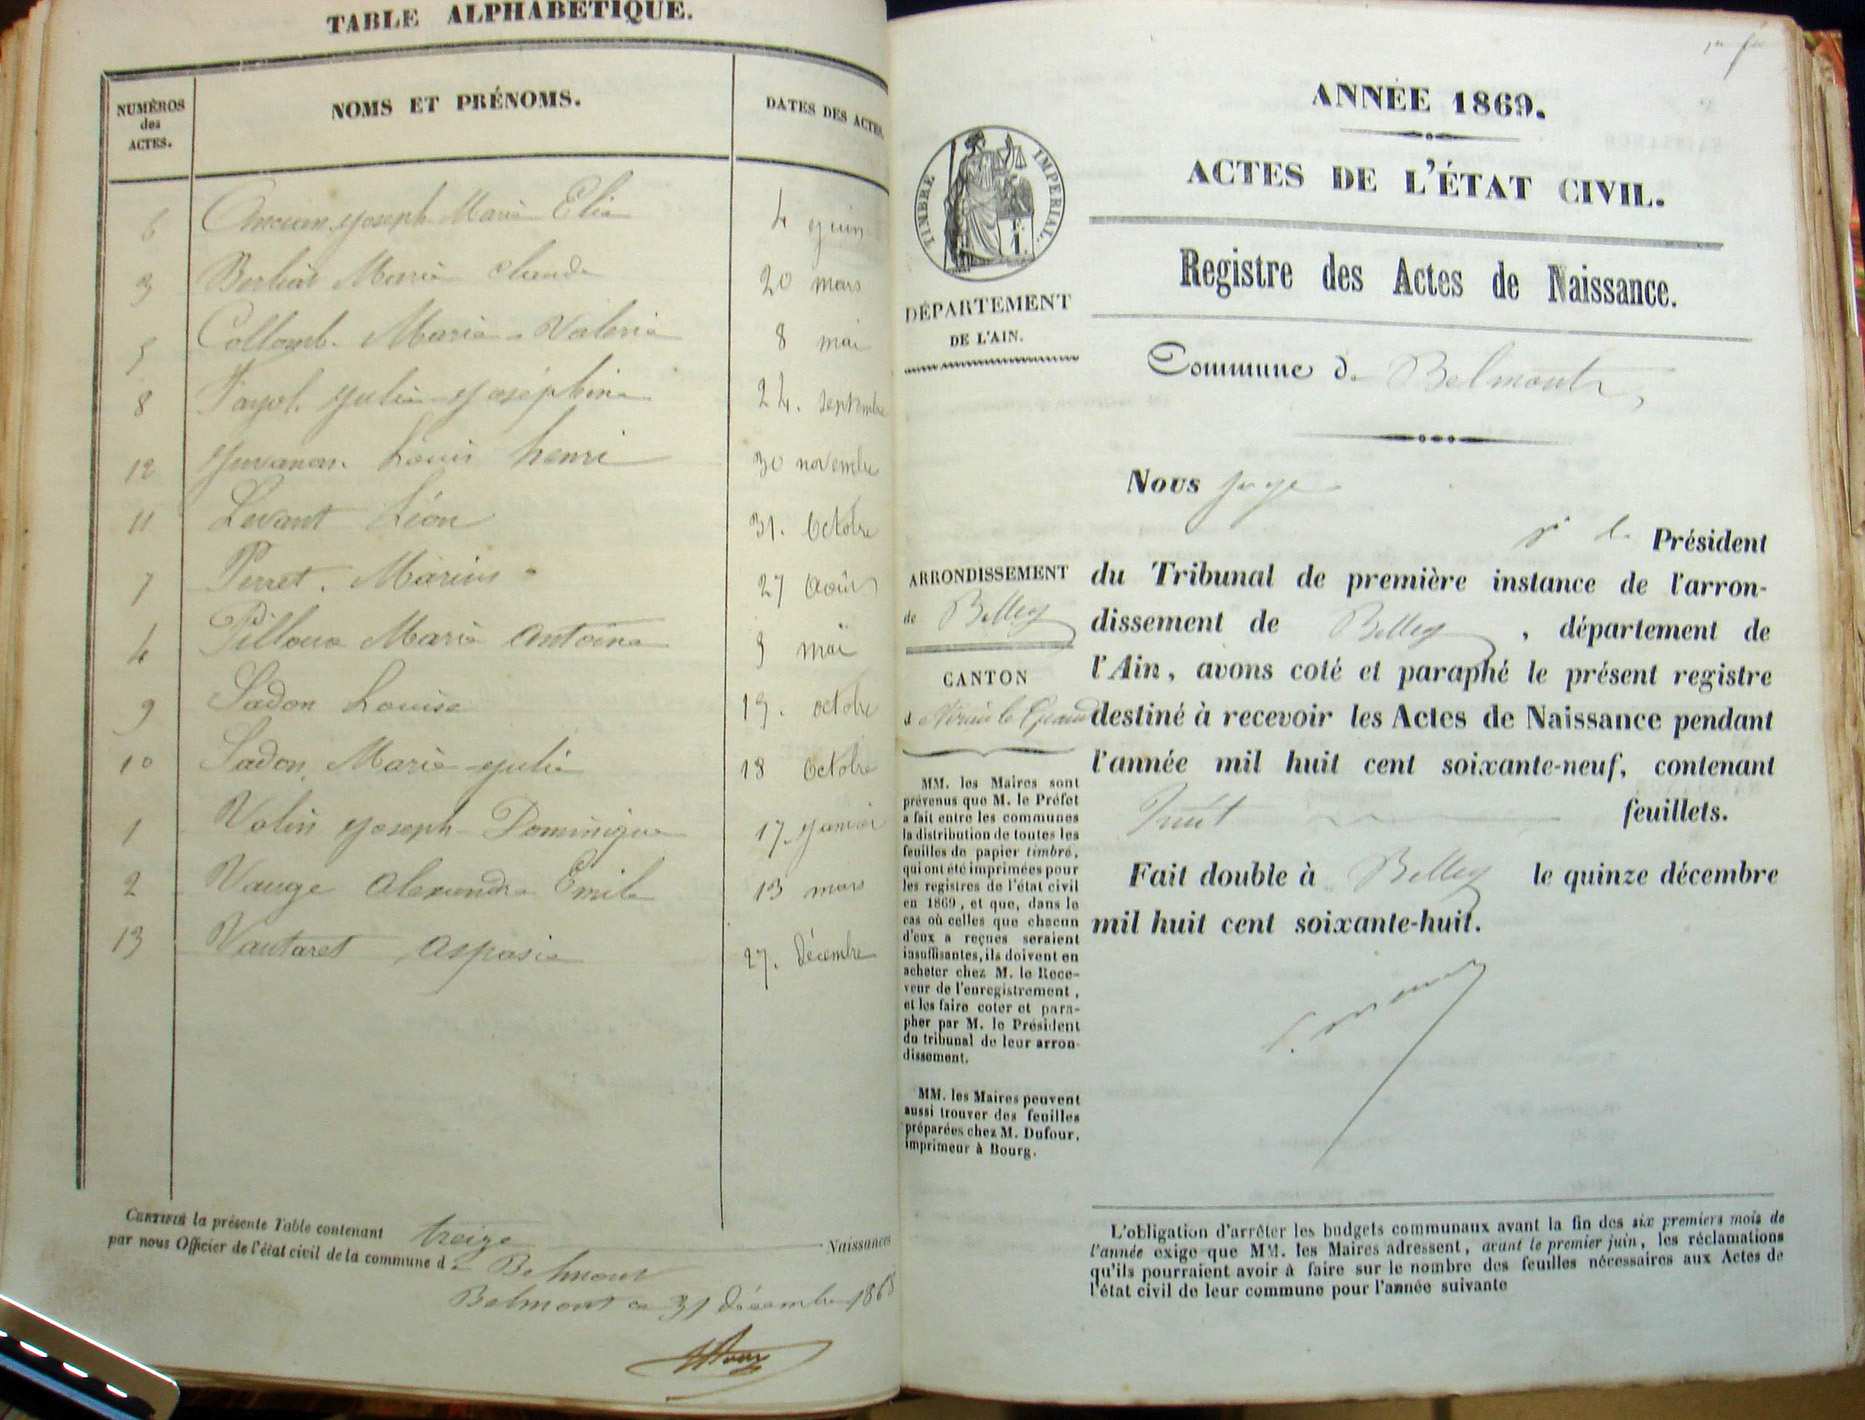 TABLE ALPHABÉTIQUE.
NUMÉROS des ACTES. NOMS ET PRÉNOMS. DATES DES ACTES.
6 Joseph Marie Elie 4 juin
3 Berliat Marie Claude 20 mars
5 Collomb Marie Valerie 8 mai
8 Fayol Julie Joséphine 24. septembre
12 Juvanon Louis henri 30 novembre
11 Levant Léon 31. Octobre
7 Perret. Marius 27 Août
4 Pilloux Marie Antoine 9 mai
9 Sadon Louise 15. octobre
10 Sadon Marie Julie 18 Octobre
1 Volin Joseph Dominique 17. Janvier
2 Vauge Alexandre Emile 13 mars
13 Vautaret Aspasie 27. Décembre
CERTIFIÉ la présente Table contenant treize Naissances
par nous Officier de l'état civil de la commune de Belmont
Belmont ce 31 décembre 1868
ANNÉE 1869.
ACTES DE L'ÉTAT CIVIL.
Registre des Actes de Naissance.
TIMBRE IMPÉRIAL.
DÉPARTEMENT
DE L'AIN.
Commune de Belmont,
Nous juge
pr le Président
du Tribunal de première instance de l'arron-
dissement de Belley, département de
l'Ain, avons coté et paraphé le présent registre
destiné à recevoir les Actes de Naissance pendant
l'année mil huit cent soixante-neuf, contenant
huit feuillets.
Fait double à Belley le quinze décembre
mil huit cent soixante-huit.
ARRONDISSEMENT
de Belley
CANTON
d Virieu le Grand
MM. les Maires sont
prévenus que M. le Préfet
a fait entre les communes
la distribution de toutes les
feuilles de papier timbré,
qui ont été imprimées pour
les registres de l'état civil
en 1869, et que, dans le
cas où celles que chacun
d'eux a reçues seraient
insuffisantes, ils doivent en
acheter chez M. le Rece-
veur de l'enregistrement,
et les faire coter et para-
pher par M. le Président
du tribunal de leur arron-
dissement.
MM. les Maires peuvent
aussi trouver des feuilles
préparées chez M. Dufour,
imprimeur à Bourg.
L'obligation d'arrêter les budgets communaux avant la fin des six premiers mois de
l'année exige que MM. les Maires adressent, avant le premier juin, les réclamations
qu'ils pourraient avoir à faire sur le nombre des feuilles nécessaires aux Actes de
l'état civil de leur commune pour l'année suivante